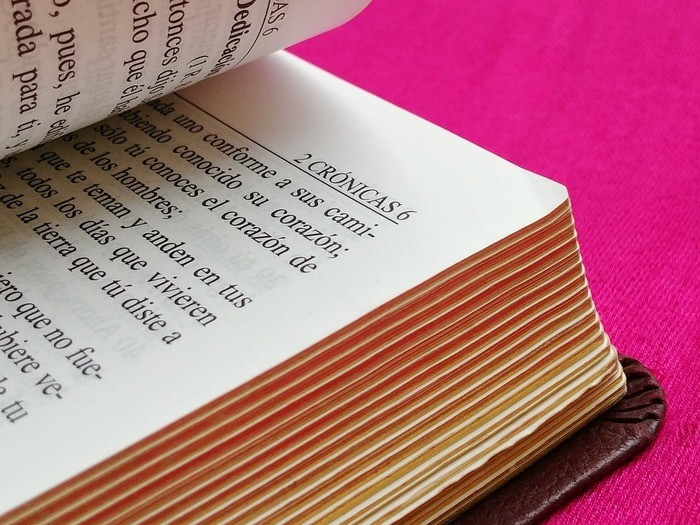 AS 6
Dedicació
(1 R.
tonces dijo
cho que él
o, pues, he
rada para ti, y
2 CRÓNICAS 6
da uno conforme a sus cami-
biendo conocido su corazón;
sólo tú conoces el corazón de
de los hombres;
que te teman y anden en tus
todos los días que vivieren
de la tierra que tú diste a
ero que no fue-
ubiere ve-
de tu